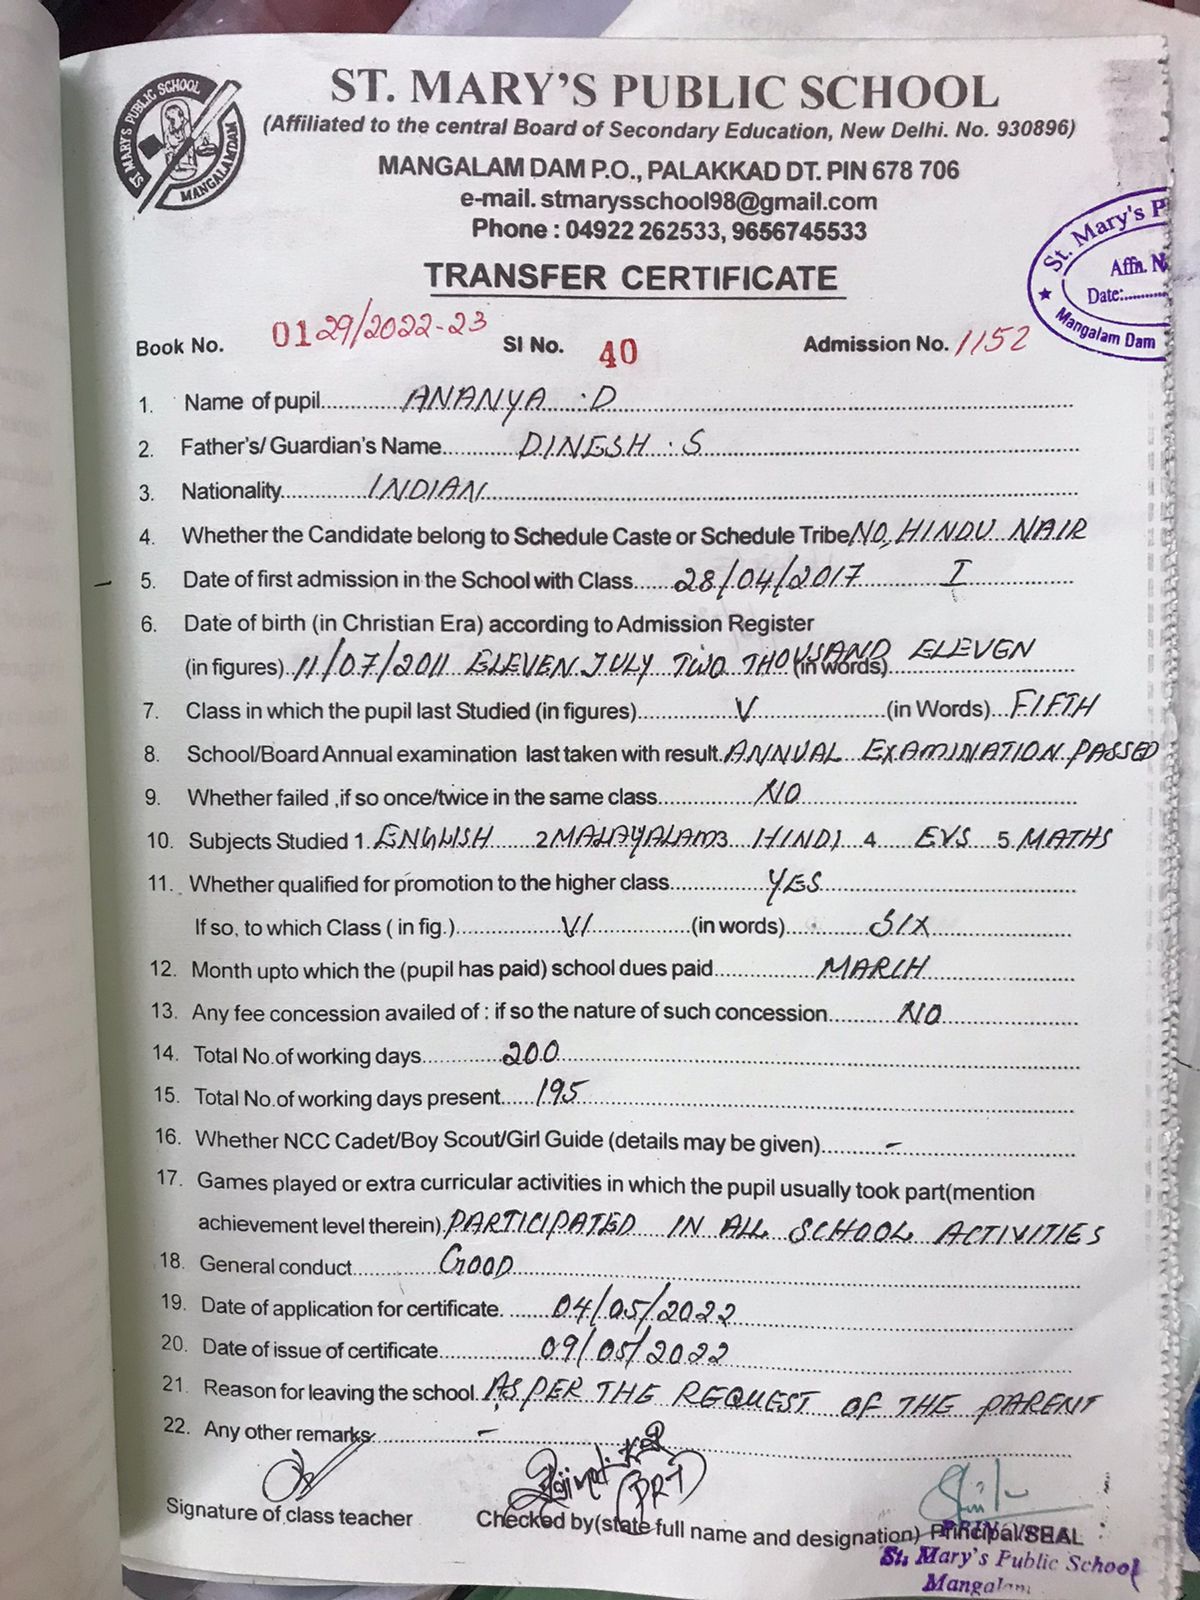 ST. MARY'S PUBLIC SCHOOL
ST MARY'S PUBLIC SCHOOL
MANGALAMDAM
(Affiliated to the central Board of Secondary Education, New Delhi. No. 930896)
MANGALAM DAM P.O., PALAKKAD DT. PIN 678 706
e-mail. stmarysschool98@gmail.com
Phone : 04922 262533, 9656745533
St. Mary's P
Affn. N
Date:............
Mangalam Dam
TRANSFER CERTIFICATE
Book No. 0129/2022-23 SI No. 40 Admission No. 1152
1. Name of pupil ANANYA . D
2. Father's/ Guardian's Name DINESH . S
3. Nationality INDIAN
4. Whether the Candidate belong to Schedule Caste or Schedule Tribe NO, HINDU NAIR
5. Date of first admission in the School with Class 28/04/2017 I
6. Date of birth (in Christian Era) according to Admission Register
(in figures) 11/07/2011 ELEVEN JULY TWO THOUSAND (in words) ELEVEN
7. Class in which the pupil last Studied (in figures) V (in Words) FIFTH
8. School/Board Annual examination last taken with result. ANNUAL EXAMINATION PASSED
9. Whether failed ,if so once/twice in the same class NO
10. Subjects Studied 1. ENGLISH 2 MALAYALAM 3 HINDI 4 EVS 5. MATHS
11. Whether qualified for promotion to the higher class YES
If so, to which Class ( in fig.) VI (in words) SIX
12. Month upto which the (pupil has paid) school dues paid MARCH
13. Any fee concession availed of : if so the nature of such concession NO
14. Total No.of working days 200
15. Total No.of working days present 195
16. Whether NCC Cadet/Boy Scout/Girl Guide (details may be given) -
17. Games played or extra curricular activities in which the pupil usually took part(mention
achievement level therein) PARTICIPATED IN ALL SCHOOL ACTIVITIES
18. General conduct GOOD
19. Date of application for certificate. 04/05/2022
20. Date of issue of certificate 09/05/2022
21. Reason for leaving the school. AS PER THE REQUEST OF THE PARENT
22. Any other remarks -
(PRT)
Signature of class teacher Checked by(state full name and designation) Principal/SEAL
St. Mary's Public School
Mangalam